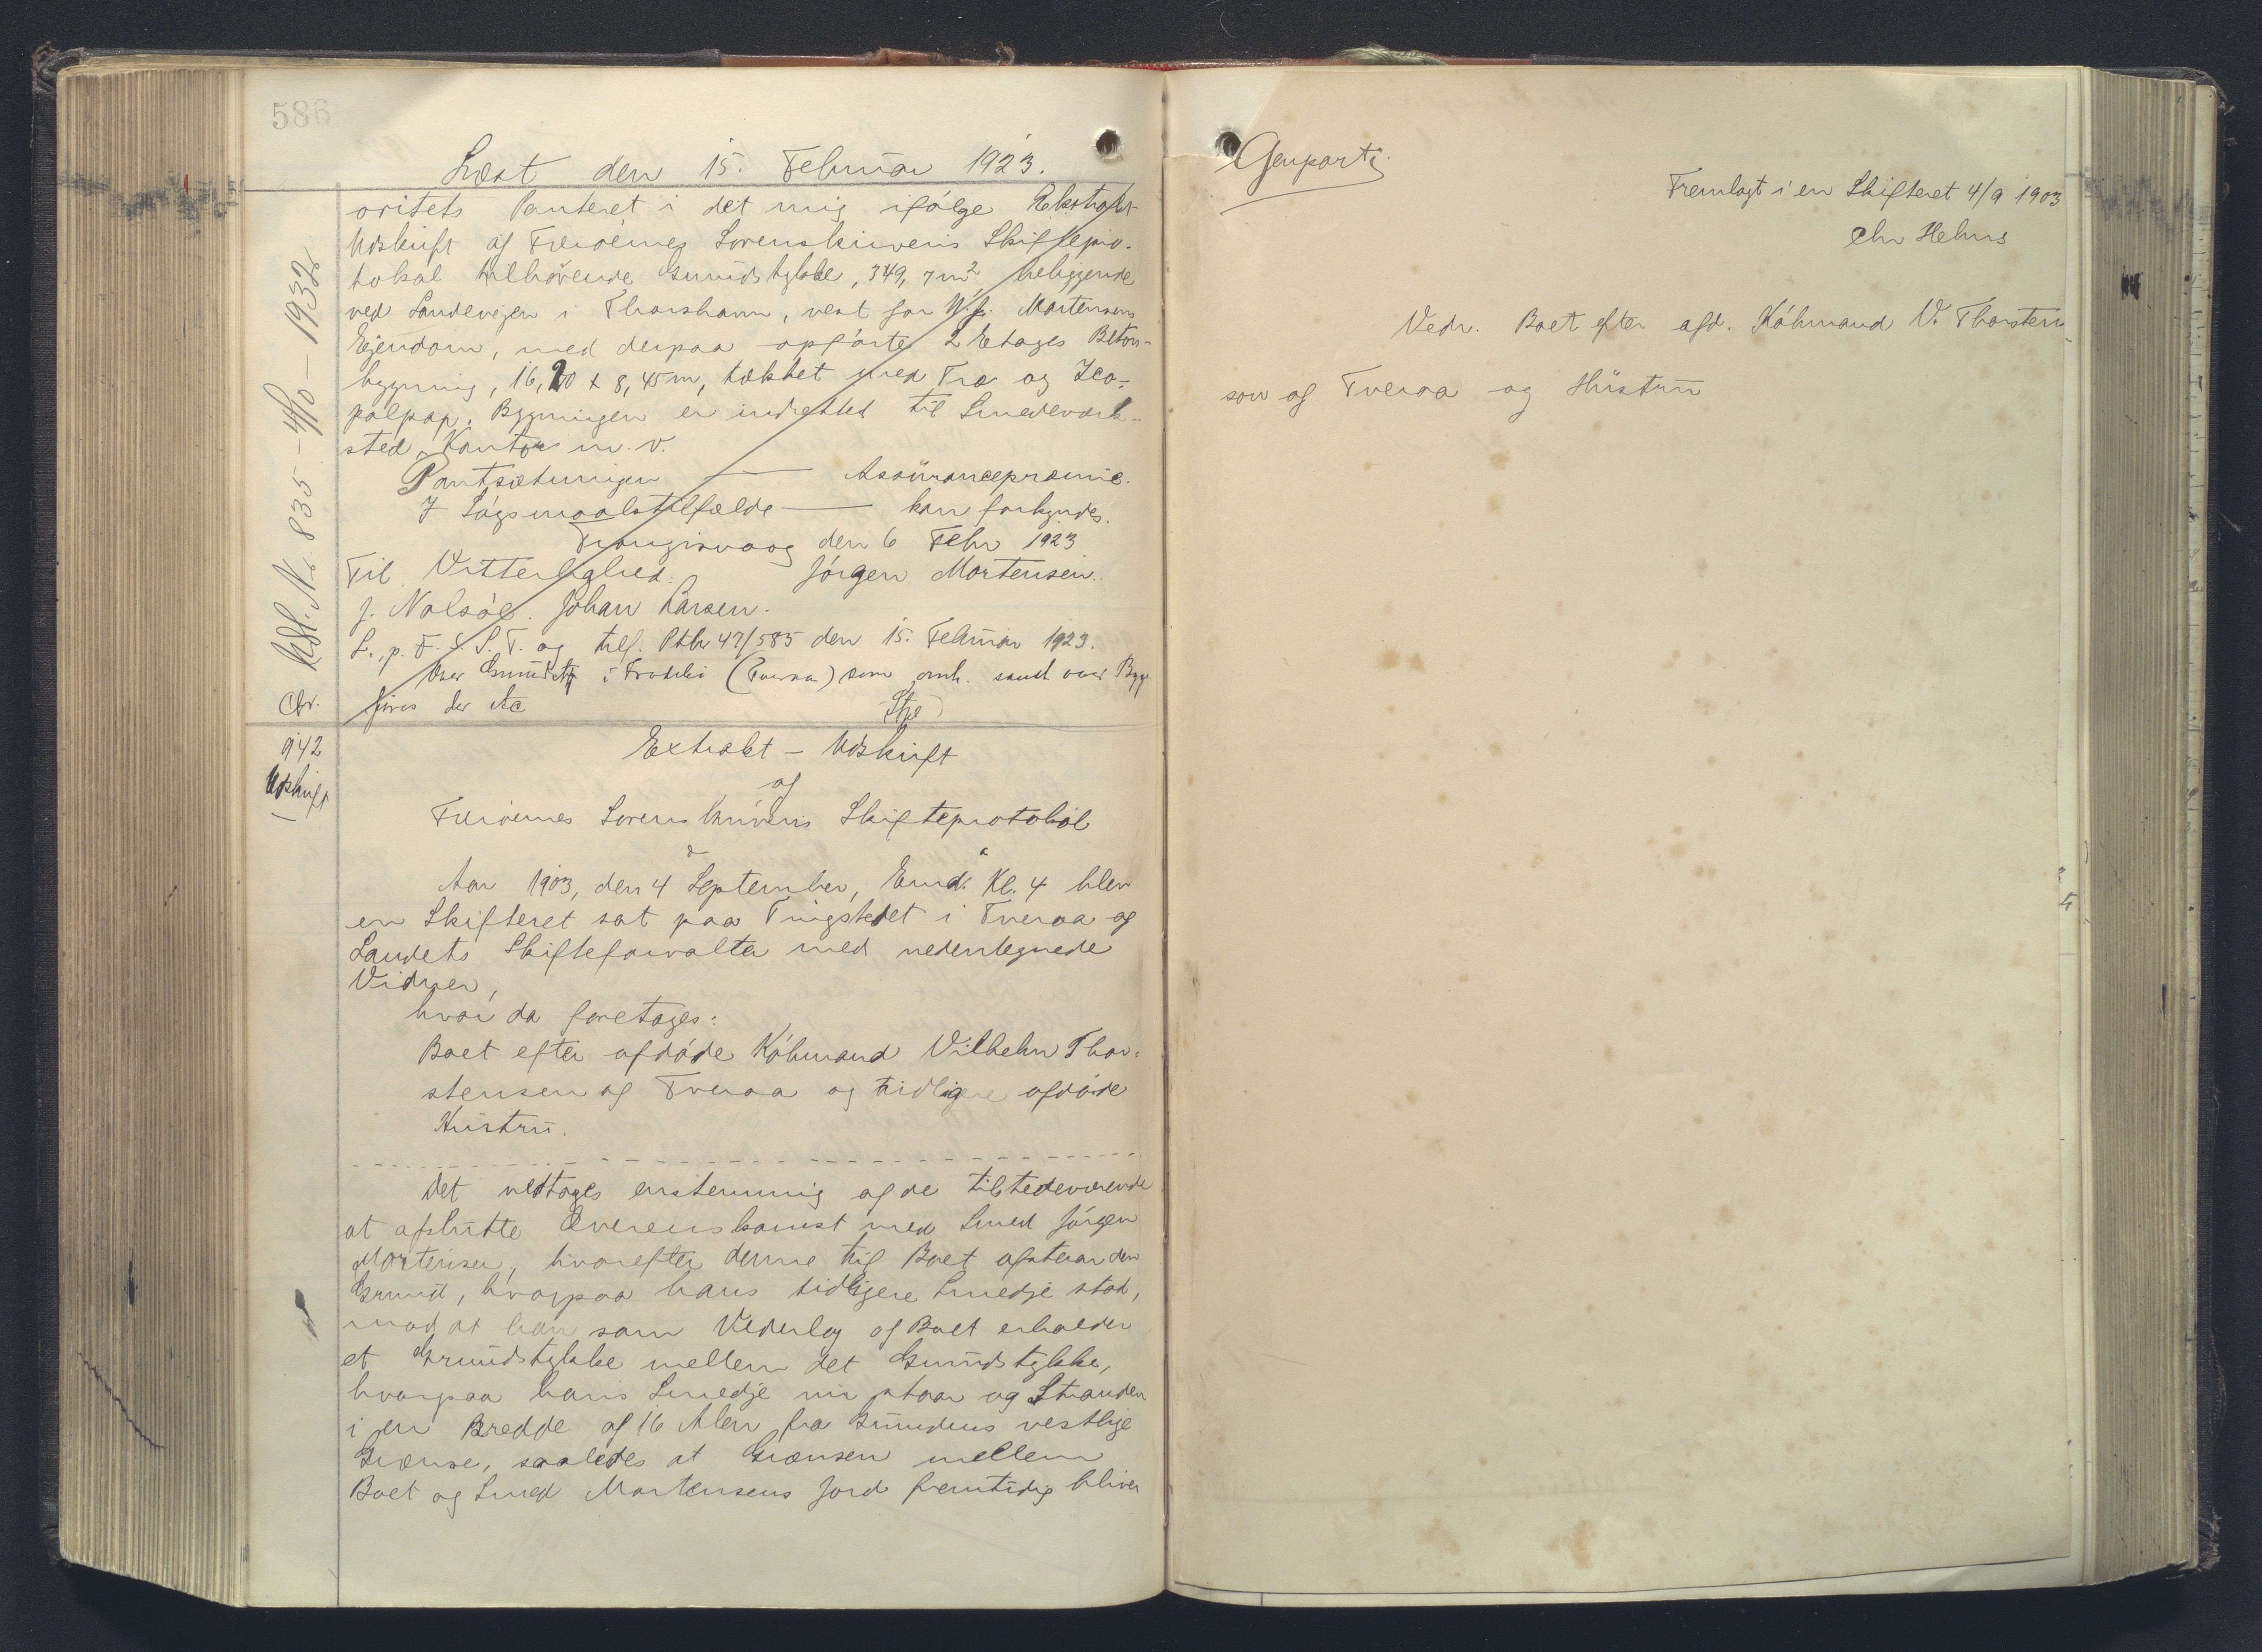 586
Læst den 15. Februar 1923.
oritets Panteret i det mig ifølge Ekstrakt
Udskrift af Færöernes Sorenskrivers Skiftepro-
tokol tilhørende Grundstykke, 349,7 m² beliggende
ved Landevejen i Thorshavn, vest for Mortensens
Ejendom, med derpaa opførte 2 Etages Beton-
bygning, 16,20 x 8,45 m, tækket med Træ og Ico-
palpap. Bygningen er indrettet til Smedeværk-
sted, Kontor m.v.
Pantsætningen — Assurancepræmie.
I Søgsmaalstilfælde — kan forkyndes.
Trangisvaag den 6 Febr 1923
Til Vitterlighed: Jörgen Mortensen.
J. Nolsøe. Johan Larsen.
L. p. F. S. S. T. og tilf. Ptb 47/585 den 15. Februar 1923.
(Tveraa) som omh. samt over Byg
Udsl. No. 835 - 4/10 - 1932
942
Udskrift
Extrakt - Udskrift
af
Færöernes Sorenskrivers Skifteprotokol
Aar 1903, den 4 September, Emd. Kl. 4 blev
en Skifteret sat paa Tingstedet i Tveraa af
Landets Skifteforvalter med nedentegnede
Vidner,
hvor da foretages:
Boet efter afdøde Købmand Vilhelm Thor-
stensen af Tveraa og tidligere afdøde
Hustru.
Det vedtages enstemmig af de tilstedeværende
at afslutte Overenskomst med Smed Jörgen
Mortensen, hvorefter denne til Boet afstaar den
Grund, hvorpaa hans tidligere Smedje stod,
mod at han som Vederlag af Boet erholder
et Grundstykke mellem det Grundstykke,
hvorpaa hans Smedje nu staar og Stranden
i en Bredde af 16 Alen fra Grundens vestlige
Grænse, saaledes at Grænsen mellem
Boet og Smed Mortensens Jord fremtidig bliver
Genpart:
Fremlagt i en Skifteret 4/9 1903
Chr Helms
Vedr. Boet efter afd. Købmand V. Thorsten
sen af Tveraa og Hustru